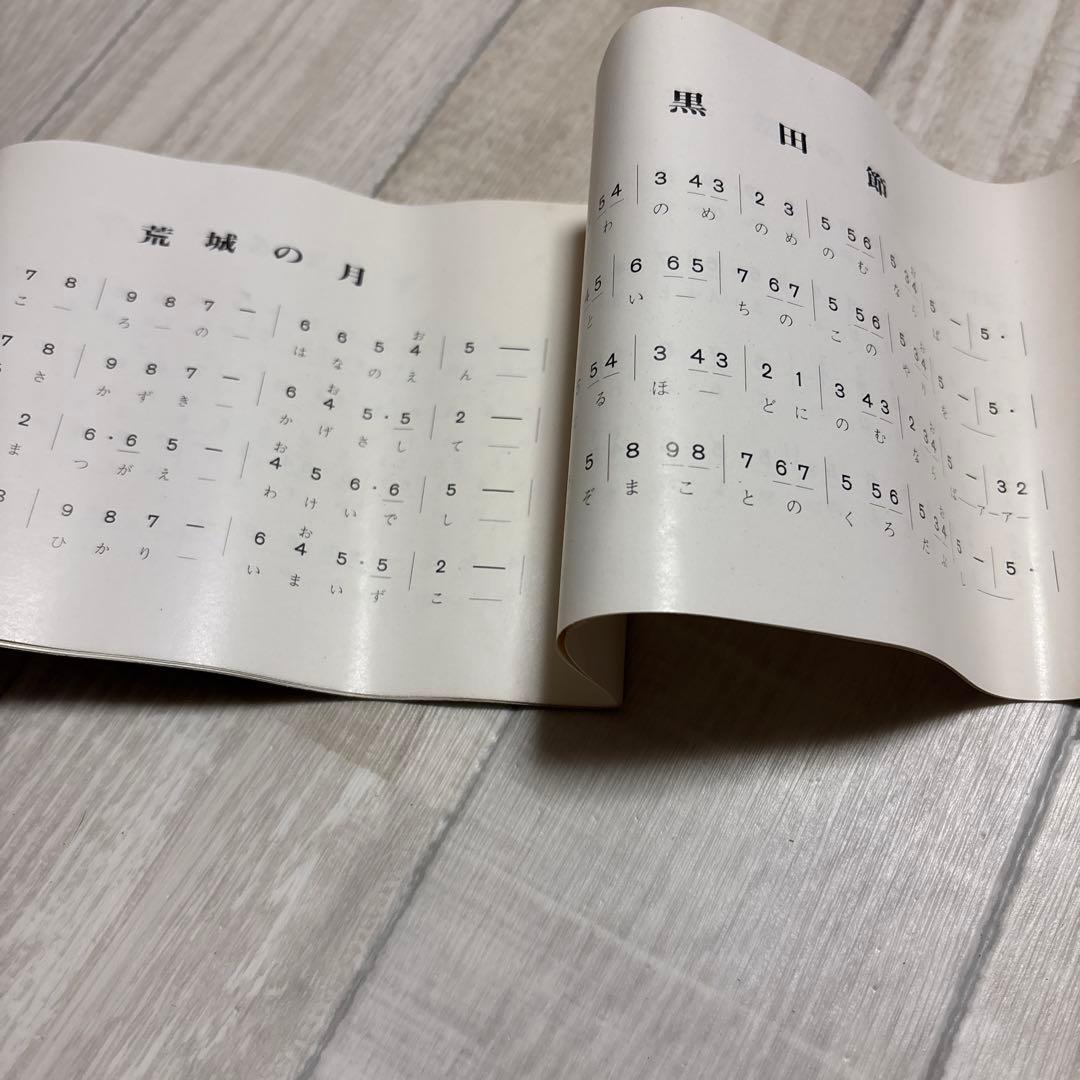 荒城の月
7 8 | 9 8 7 ー | 6 6 5 4 | 5 ー |
こ ー ろ ー の ー は な の え ん ー
7 8 | 9 8 7 ー | 6 4 5・5 | 2 ー |
さ か ず き ー か げ さ し て ー
2 | 6・6 5 ー | 4 5 6・6 | 5 ー |
ま つ が え ー わ け い で し ー
| 9 8 7 ー | 6 4 5・5 | 2 ー
ひ か り ー い ま い ず こ ー
黒田節
5 4 | 3 4 3 | 2 3 | 5 5 6 | 5 3 4 | 5 ー | 5・ |
わ の め の め の む な ら ば
5 | 6 6 5 | 7 6 7 | 5 5 6 | 5 3 4 | 5 ー | 5・
と い ー ち の こ の や り を
5 4 | 3 4 3 | 2 1 | 3 4 3 | 2 3 4 | 5 ー | 3 2 |
る ほ ー ど に の む な ら ば ー アー アー
5 | 8 9 8 | 7 6 7 | 5 5 6 | 5 3 4 | 5 ー | 5・ |
ぞ ま こ と の く ろ だ ぶ し